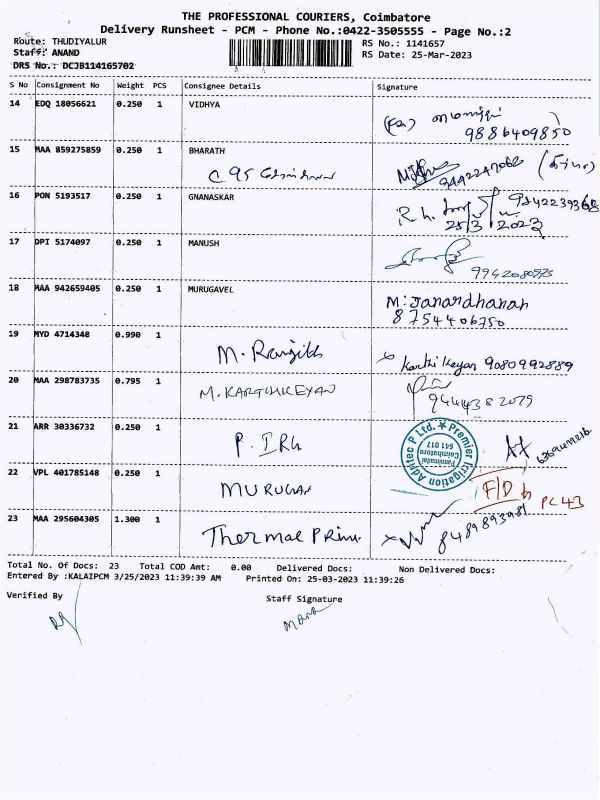 THE PROFESSIONAL COURIERS, Coimbatore
Delivery Runsheet - PCM - Phone No.:0422-3505555 - Page No.:2
Route: THUDIYALUR
Staff: ANAND
DRS No.: DCJB114165702
RS No.: 1141657
RS Date: 25-Mar-2023
S No Consignment No Weight PCS Consignee Details Signature
14 EDQ 18056621 0.250 1 VIDHYA
9886409850
15 MAA 859275859 0.250 1 BHARATH
C 95
16 PON 5193517 0.250 1 GNANASKAR
9842239368
25/3/2023
17 DPI 5174097 0.250 1 MANUSH
9942080925
18 MAA 942659405 0.250 1 MURUGAVEL
M. Janardhanan
8754406750
19 MYD 4714348 0.990 1 M. Ranjith Karthikeyan 9080992889
20 MAA 298783735 0.795 1 M. KARTHIKEYAN
9444382079
21 ARR 30336732 0.250 1 P. IRG
Premier Irrigation Adritec P Ltd.
Coimbatore
641 017
22 VPL 401785148 0.250 1 MURUGAN F/D PC 43
23 MAA 295604305 1.300 1 Thermal Print 8489893981
Total No. Of Docs: 23 Total COD Amt: 0.00 Delivered Docs: Non Delivered Docs:
Entered By :KALAIPCM 3/25/2023 11:39:39 AM Printed On: 25-03-2023 11:39:26
Verified By Staff Signature